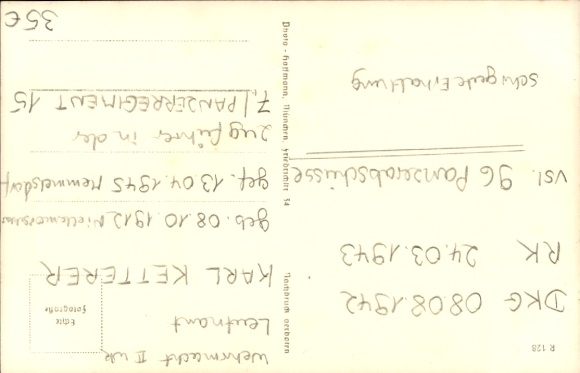 R 128
DKG 08 08.1942
RK 24.03.1943
vsl. 96 Panzerabschüsse
Sehr gute Erhaltung
Nachdruck verboten
Photo - Hoffmann, München, Friedrichstr. 34
Wehrmacht II WK
Leutnant
Echte
Fotografie
KARL KETTERER
geb. 08.10.1912
gef. 13.04.1945
Zugführer in der
7./PANZERREGIMENT 15
35€